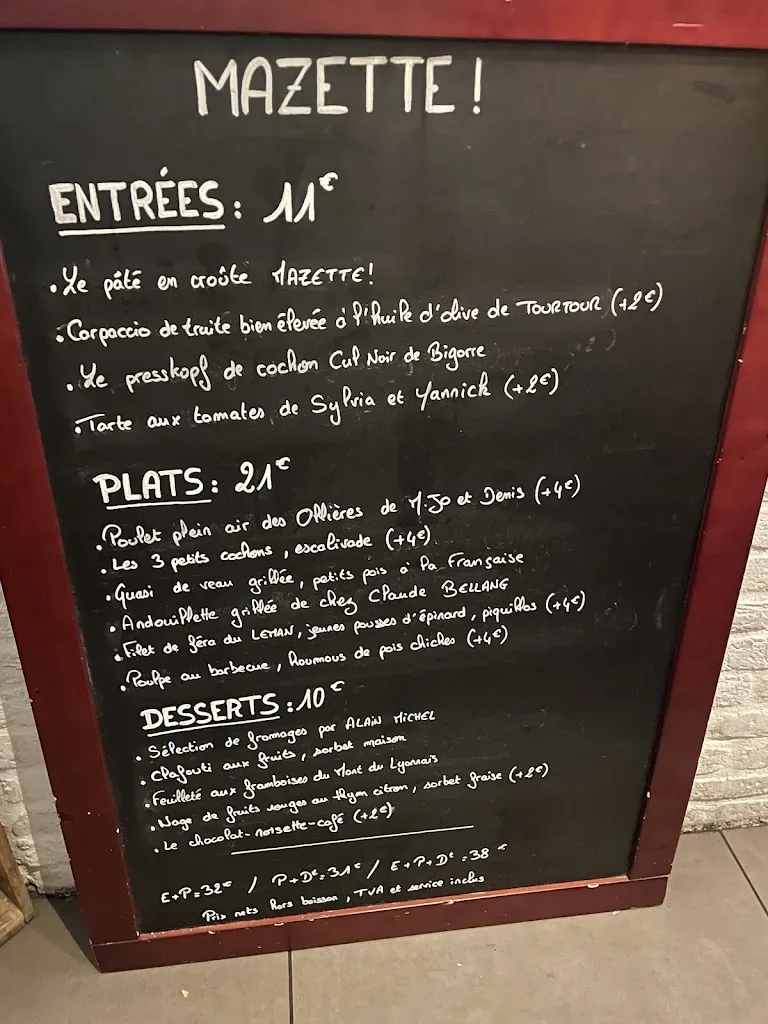 MAZETTE !
ENTRÉES : 11€
• Le pâté en croûte MAZETTE !
• Carpaccio de truite bien élevée à l'huile d'olive de TOURTOUR (+2€)
• Le presskopf de cochon Cul Noir de Bigorre
• Tarte aux tomates de Sylvia et Yannick (+2€)
PLATS : 21€
• Poulet plein air des Ollières de M.Jo et Denis (+4€)
• Les 3 petits cochons, escalivade (+4€)
• Quasi de veau grillée, petits pois à la Française
• Andouillette grillée de chez Claude BELLANG
• Filet de féra du LEMAN, jeunes pousses d'épinard, piquillos (+4€)
• Poulpe au barbecue, houmous de pois chiches (+4€)
DESSERTS : 10€
• Sélection de fromages par ALAIN MICHEL
• Clafouti aux fruits, sorbet maison
• Feuilleté aux framboises du Mont du Lyonnais
• Nage de fruits rouges au thym citron, sorbet fraise (+2€)
• Le chocolat-noisette-café (+2€)
E+P=32€ / P+Dt=31€ / E+P+Dt=38€
Prix nets hors boisson, TVA et service inclus